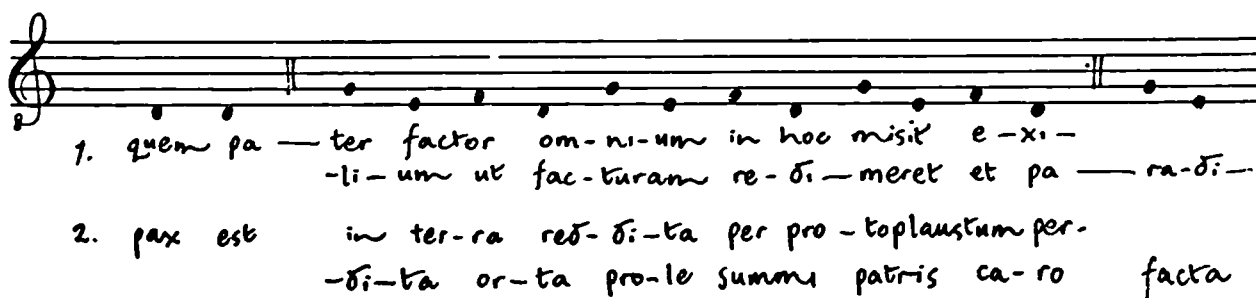 8
1. quem pa — ter factor om-ni-um in hoc misit e-xi-
-li-um ut fac-turam re-di-meret et pa — ra-di-
2. pax est in ter-ra red-di-ta per pro-toplaustum per-
-di-ta or-ta pro-le summi patris ca-ro facta